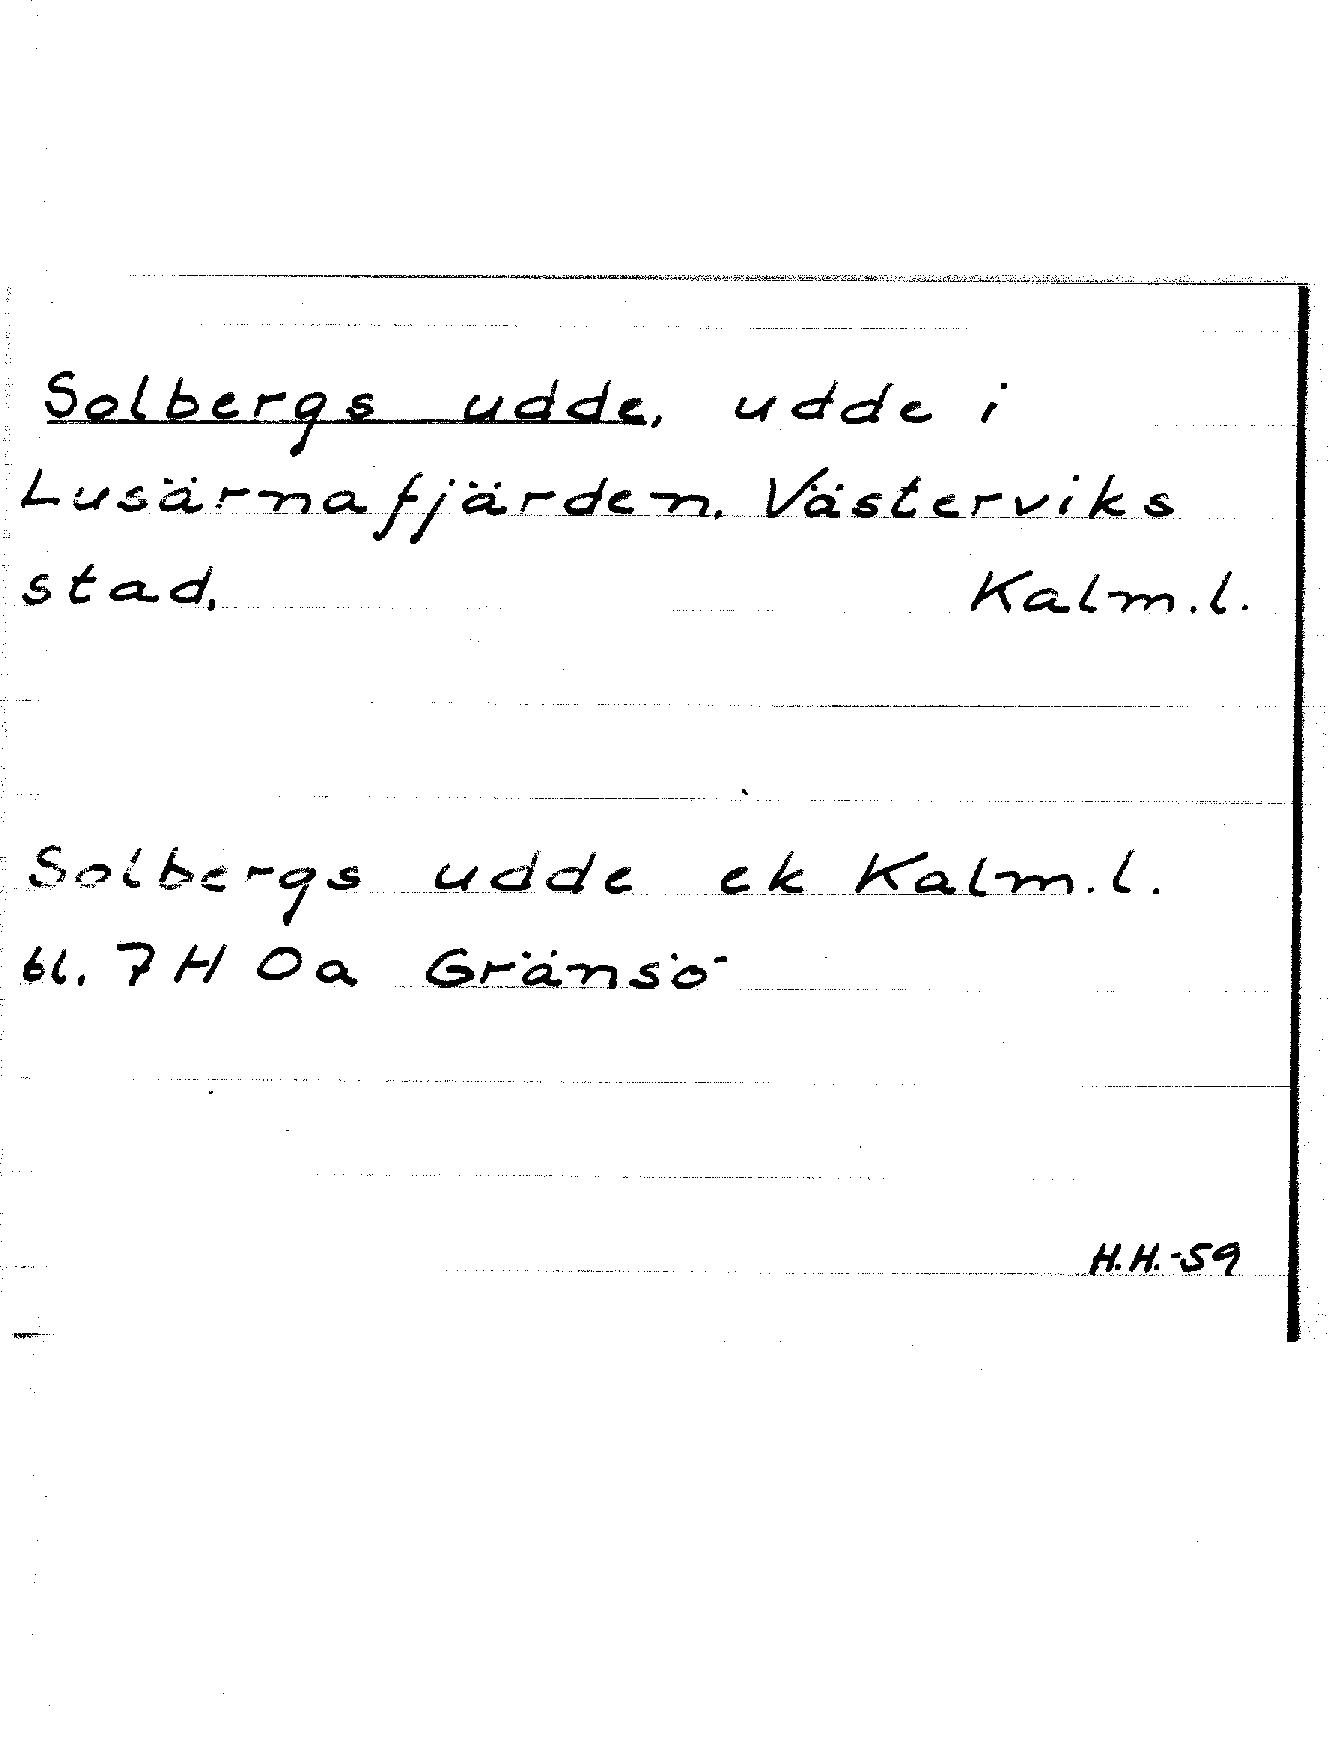 Solbergs udde, udde i
Lusärnafjärden. Västerviks
stad. Kalm.l.
Solbergs udde ek Kalm.l.
bl. 7 H 0a Gränsö
H.H.-59